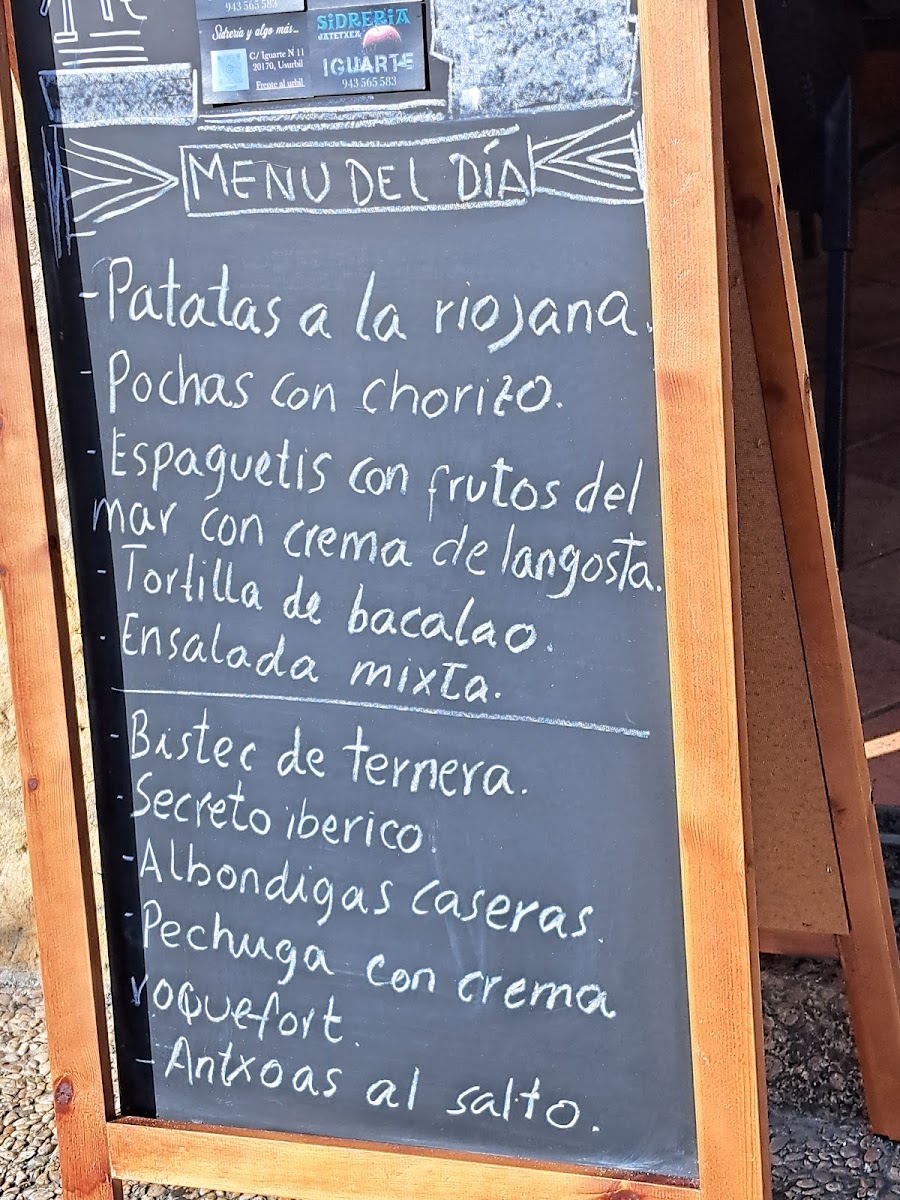 943 565 583
Sidrería y algo más...
C/ Iguarte N 11
20170, Usurbil
Frente al urbil
SiDRERiA
JATETXEA
IGUARTE
943 565 583
MENU DEL DÍA
- Patatas a la riojana.
- Pochas con chorizo.
- Espaguetis con frutos del
mar con crema de langosta.
- Tortilla de bacalao.
- Ensalada mixta.
- Bistec de ternera.
- Secreto iberico
- Albondigas caseras.
- Pechuga con crema
roquefort.
- Antxoas al salto.